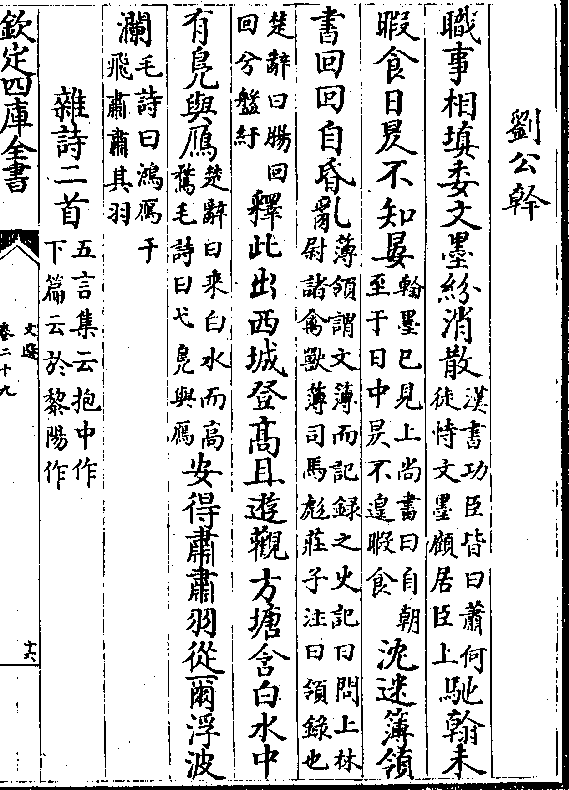 劉公幹
職事相填委文墨紛消散漢書功臣皆曰蕭何徒恃文墨顧居臣上馳翰未
暇食日昃不知晏翰墨已見上尚書曰自朝至于日中昃不遑暇食沈迷簿領
書回回自昏亂薄領謂文薄而記録之史記曰問上林尉諸禽獸薄司馬彪莊子注曰領録也
楚辭曰腸回回兮盤紆釋此出西城登髙且遊觀方塘含白水中
有鳬與鴈楚辭曰乘白水而高騖毛詩曰弋鳬與鴈安得肅肅羽從爾浮波
瀾毛詩曰鴻鴈于飛肅肅其羽
雜詩二首五言集云抱中作下篇云於黎陽作
欽定四庫全書
文選
卷二十九
十六